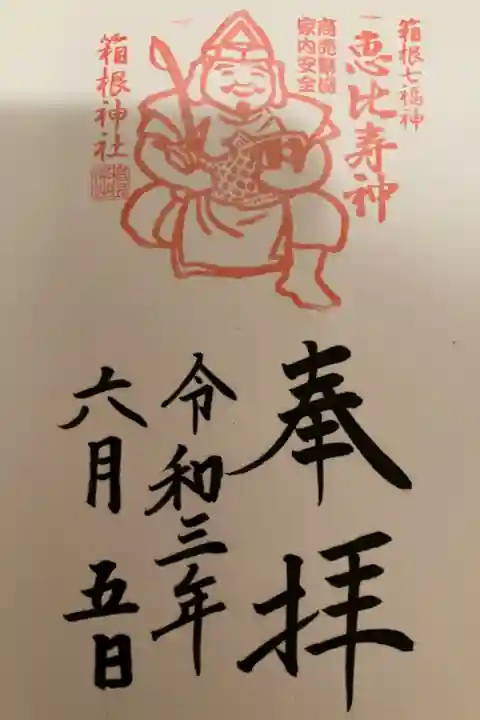 箱根七福神
恵比寿神
商売繁昌
家内安全
箱根神社
奉拝
令和三年
六月五日